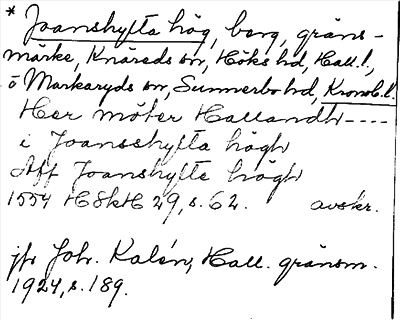 * Joanshylta hög, berg, gräns-
märke, Knäreds sn, Höks hd, Hall. l.,
ö Markaryds sn, Sunnerbo hd, Kronob. l.
Her möter Hallandh ----
i Joansshylta högh
Aff Joanshylte högh
1554 HSkH 29, s. 62. avskr.
jfr Joh. Kalén, Hall. gränsm.
1924, s. 189.